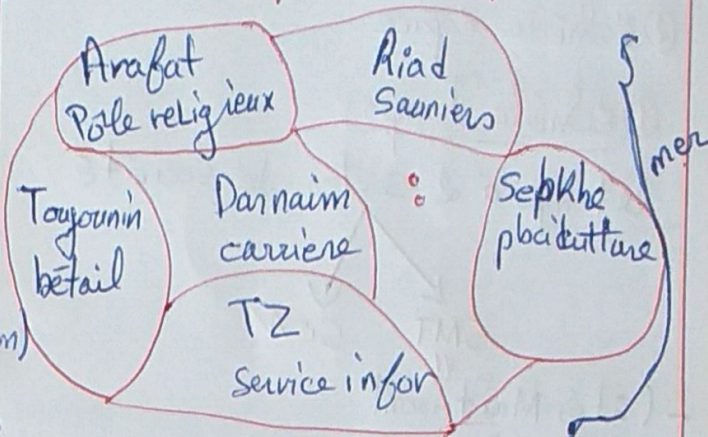 Arafat
Pôle religieux
Riad
Sauniers
mer
Toujounin
bétail
Darnaim
carrière
Sebkhe
TZ
Service infor